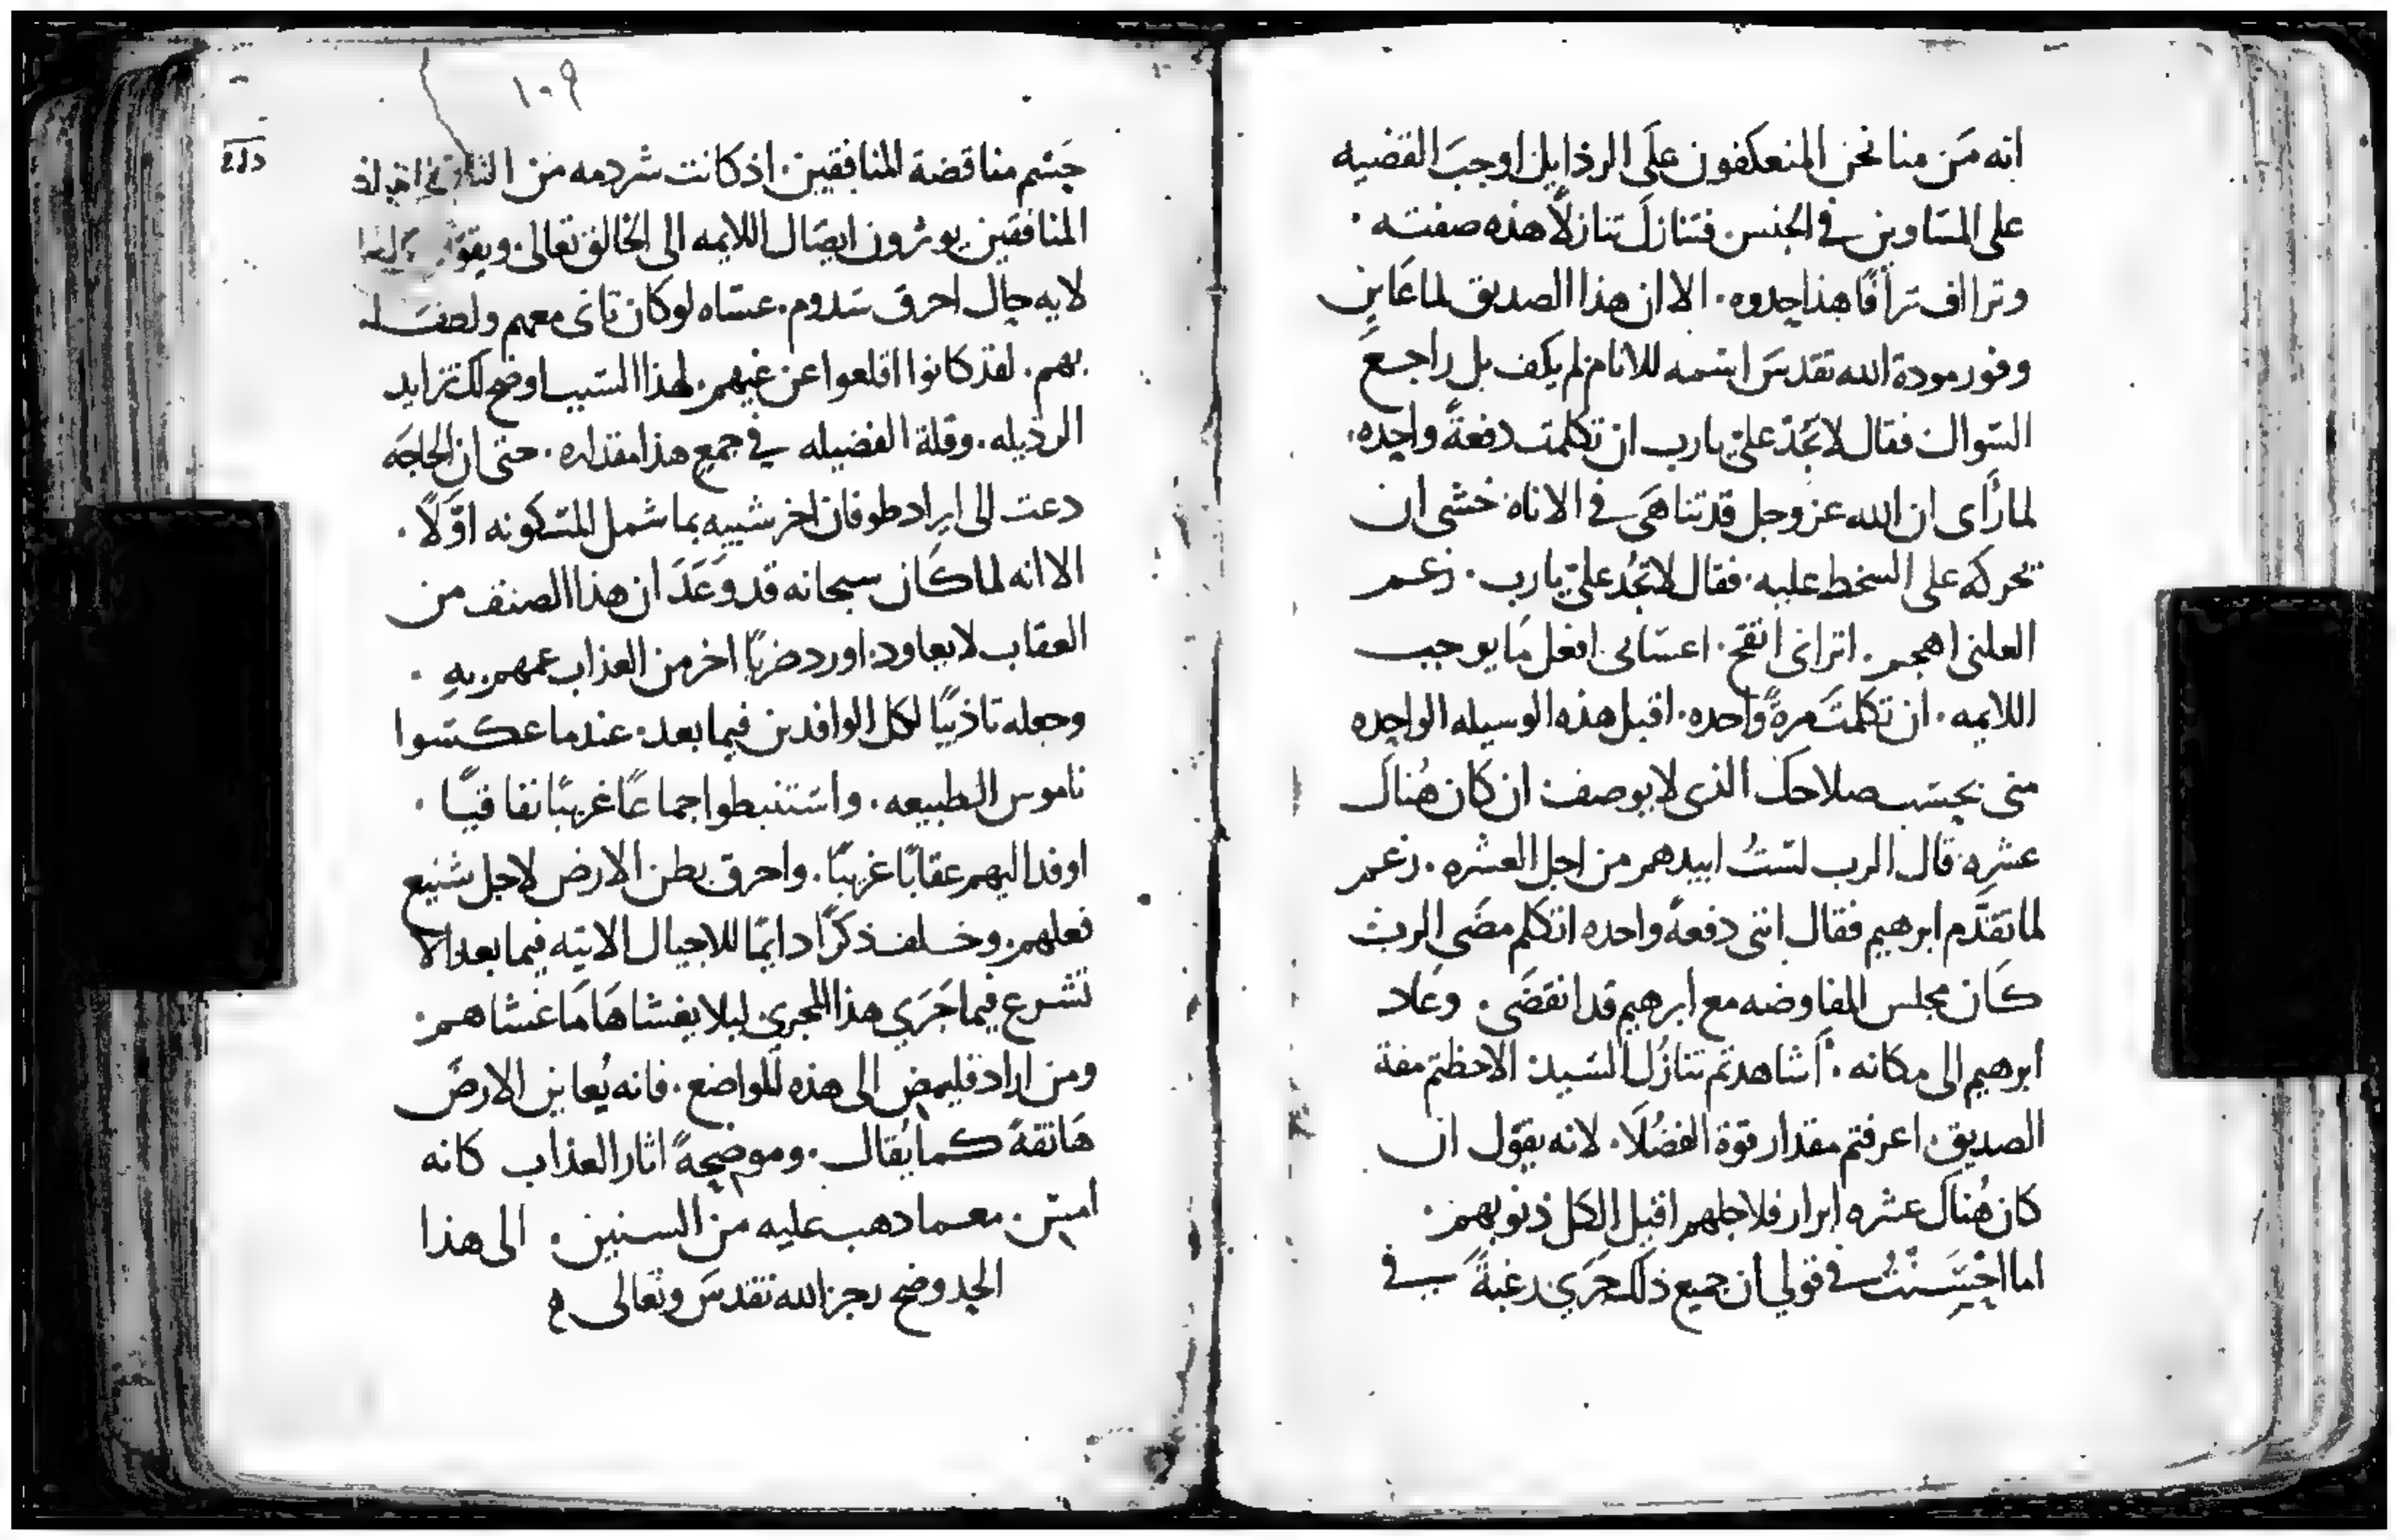 انه مَن منا نحن المنعكفون علَى الرذايل اوجبَ القضيه
على المسَاوين في الجنس. فتنازلَ تنازلًا هذه صفته.
وتراأف ترأفًا هذا حِدوه. الا ان هذا الصديق لما عَاين
وفور مودة الله تقدسَ اسَمه للانام لم يكف بل راجع
السَوال فقال لا تَجُدْ علىّ يارب ان تكلمت دفعةً واحِده.
لما رَأى ان الله عز وجل قد تناهَى في الاناه خشى ان
يحركه على السخط عليه. فقال لا تَجُد علىّ يارب. زعم
العلنى اهجم. اترانى اتقح. اعسَانى افعل مَا يوجب
اللايمه. ان تكلمتَ مرةً واحده. اقبل هذه الوسيله الواحِده
منى بحسَب صلاحكَ الذى لا يوصف ان كان هُناكَ
عشره. قال الرب لسَتُ ابيدهم من اجل العشره. زعم
لما تقدَّم ابرهيم فقال اننى دفعةً واحده اتكلم مضَى الرب
كَان مجلس المفاوضه مع ابرهيم قد انقضَى. وعَاد
ابرهيم الى مكانه. أَشاهدتم تنازُل السَيد. الاحظتم مقة
الصديق. اعرفتم مقدار قوة الفضُلَا. لانه يقول ان
كان هُناكَ عشره ابرار فلاجلهم اقبل الكل ذنوبهم.
اما احْسَِنْتُ في قولي أن جميع ذلك جَرَي رغبةً في
١٠٩
حَسَم مناقضة المنافقين. اذ كانت شرذمه مَن
المنافقين يوثرون ايصَال اللايمه الى الخالق تعالى
لايه حِال احرق سَدوم. عسَاه لو كان تأنى معهم ولطف
بهم. لقد كانوا اقلعوا عن غيهم. لهذا السَبب اوضح لك تزايد
الرذيله. وقلة الفضيله في جمع هذا مقداره. حتى ان الحاجَه
دعت الى ايراد طوفان اخر شبيه بما شمل المسَكونه اوَّلًا.
الا انه لما كَان سبحانه قد وَعَدَ ان هذا الصنف من
العقاب لا يعاود. اورد ضربًا اخر من العذاب عمهم بهِ.
وجعله تاذيبًا لكل الوافدين فيما بعد. عندما عكسَوا
ناموس الطبيعه. واسَتنبطوا جماعًا غريبًا نفاقيًا.
اوفد اليهم عقابًا غريبًا. واحرق بطن الارض لاجل شنيع
فعلهم. وخلف ذكرًا دايمًا للاجيال الاتيه فيما بعد الا
تشرع فيما جَرَي هذا المجري ليلا يغشاهَا مَا غشاهم.
ومن اراد فليمض الى هذه المواضع. فانه يُعاين الارضَ
هَاتفةً كما يُقال. وموضِحةً اثار العذاب كانه
امسَ. معما دهب عليه من السنين. الى هذا
الحِد وضح رجز الله تقدسَ وتعالى